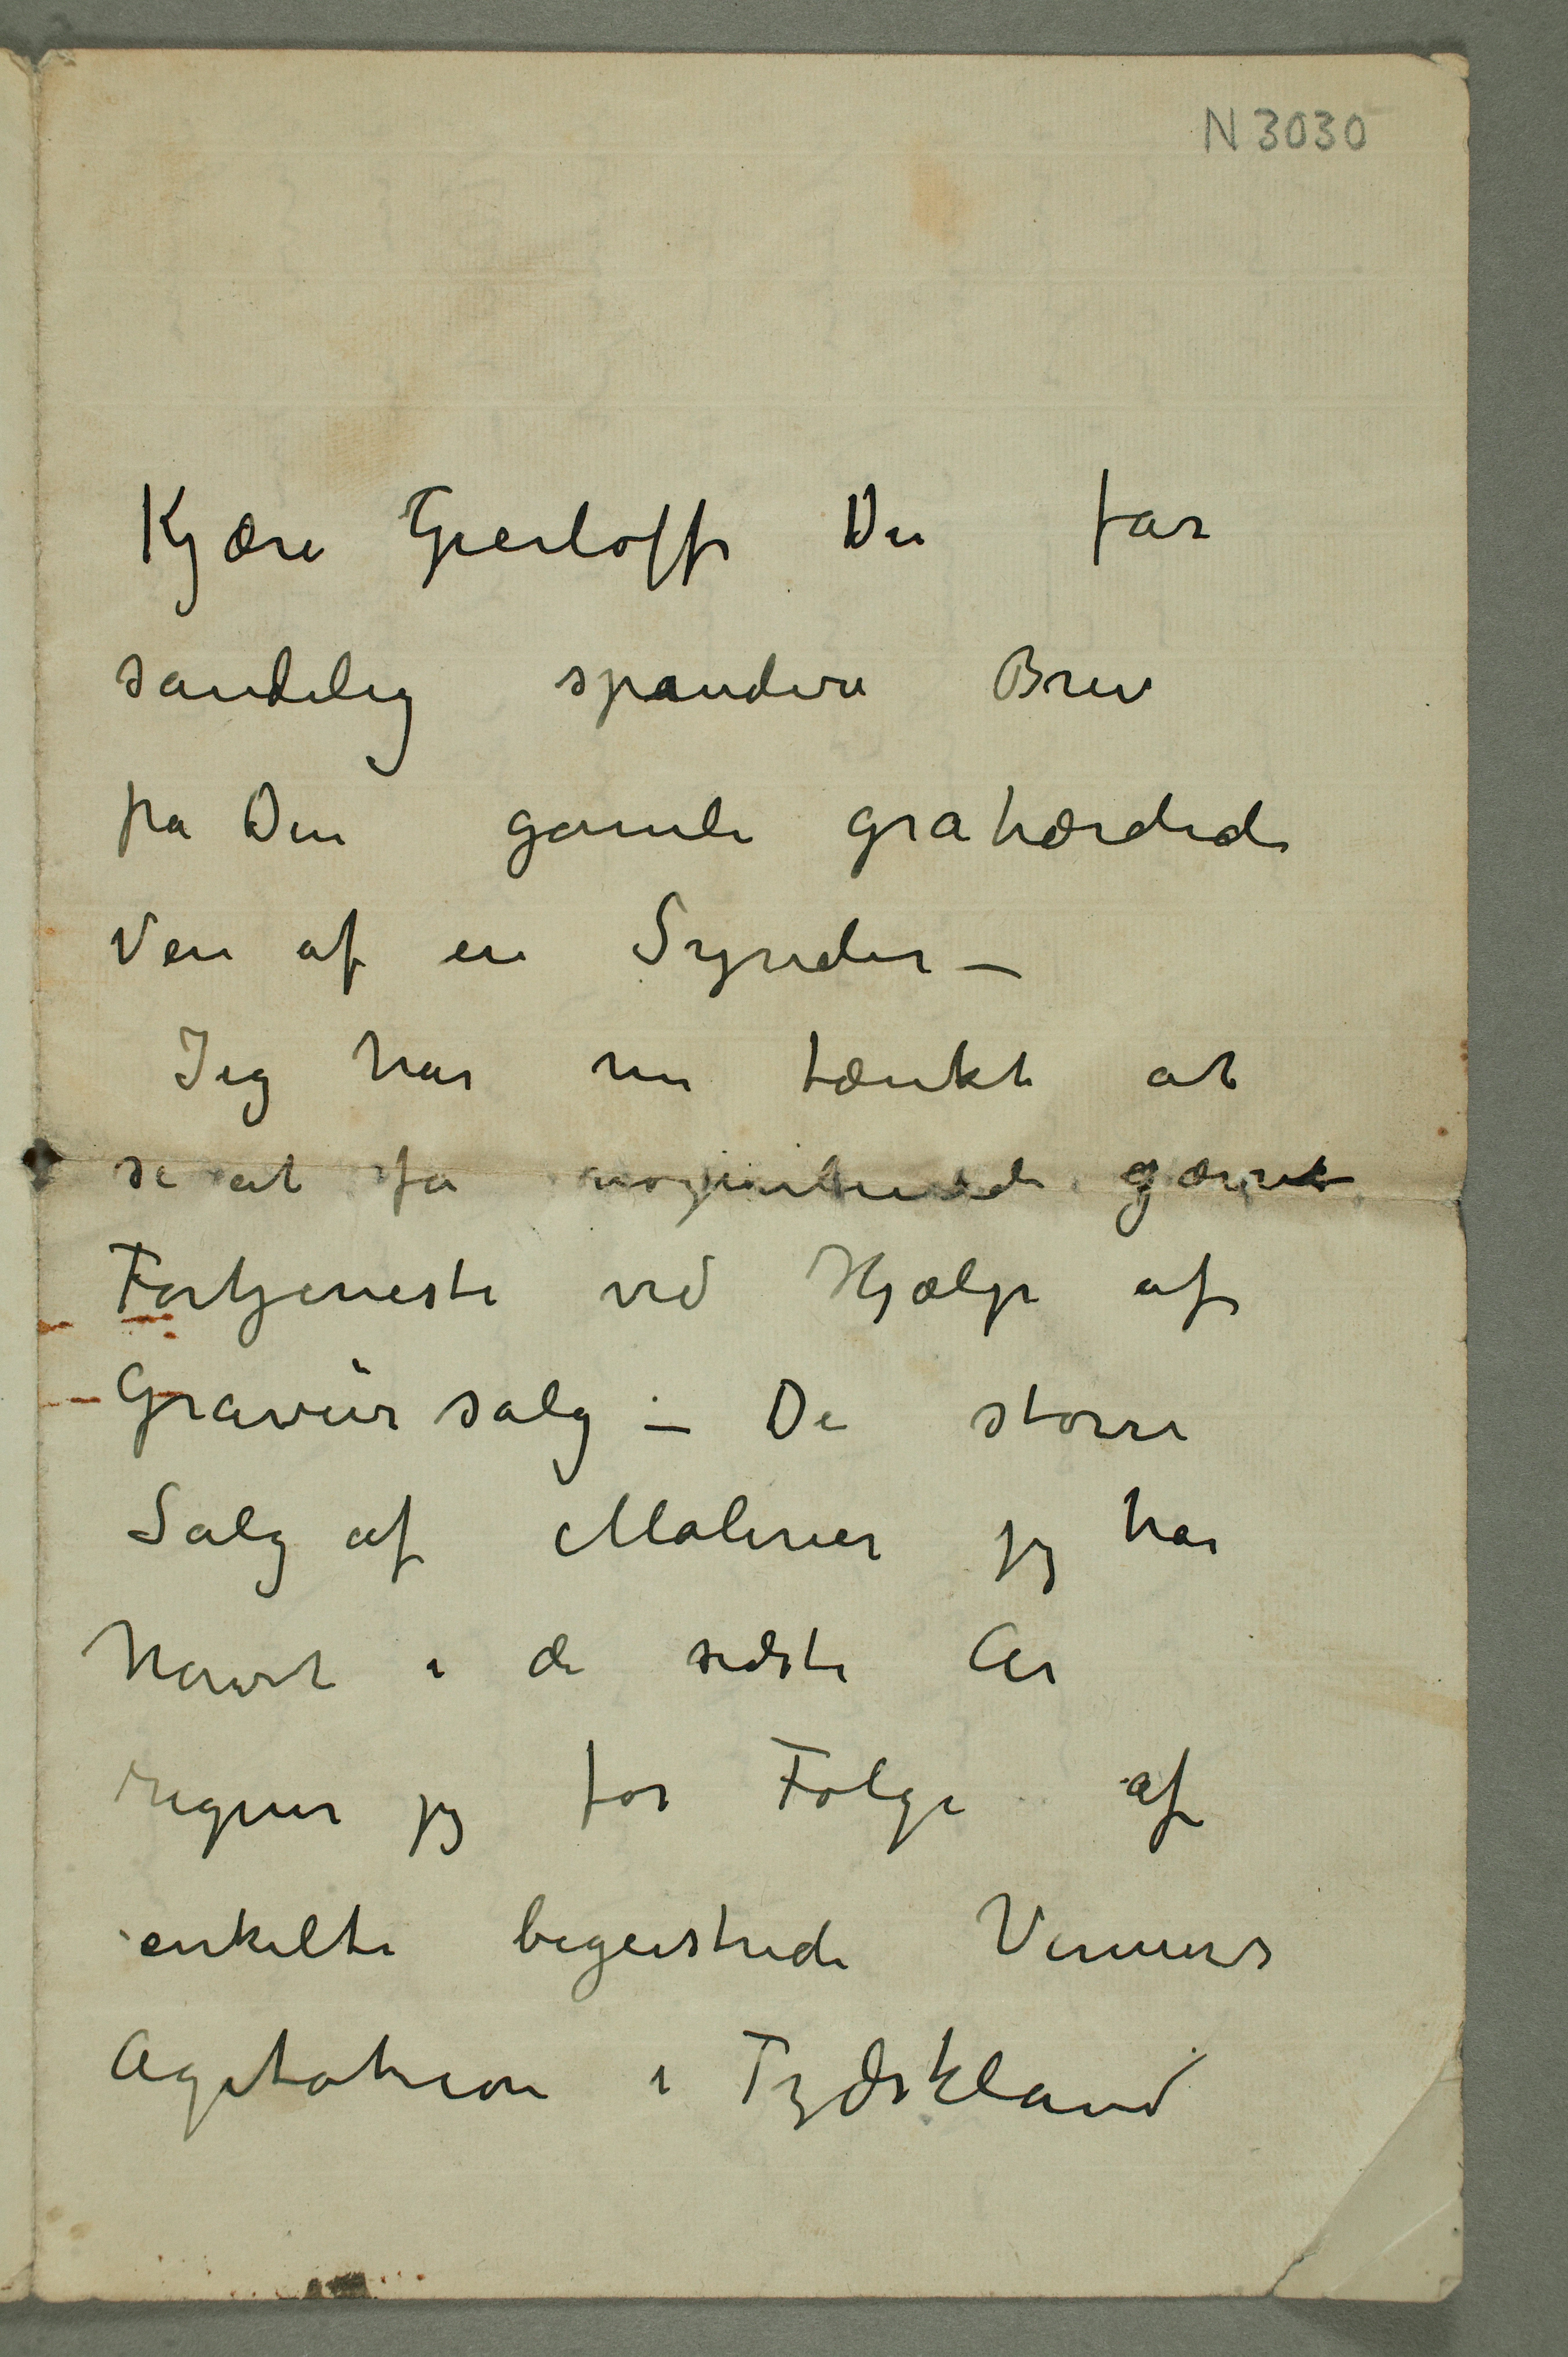 N 3030
Kjære Gierløff Du får
sandelig spandere Brev
på Din gamle gråhærdede
Ven af en Synder –
Jeg har nu tænkt at
se at få nogenlunde gævnt
Fortjeneste ved Hjælp af
Gravürsalg – De større
Salg af Malerier jeg har
havt i de sidste År
regner jeg for Følge af
enkelte begeistrede Venners
Agitation i Tydskland